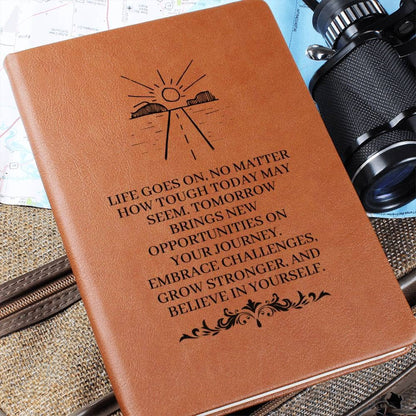 LIFE GOES ON. NO MATTER
HOW TOUGH TODAY MAY
SEEM. TOMORROW
BRINGS NEW
OPPORTUNITIES ON
YOUR JOURNEY.
EMBRACE CHALLENGES,
GROW STRONGER, AND
BELIEVE IN YOURSELF.